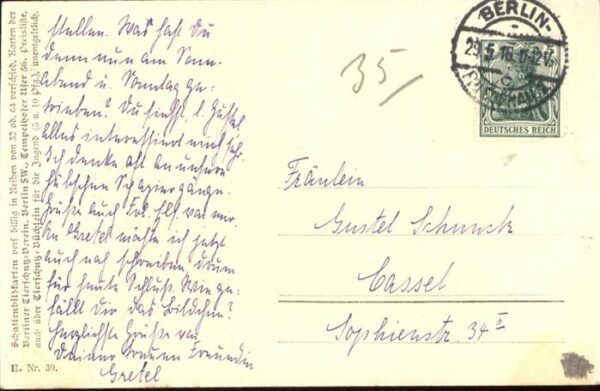 stellen. Was hast Du
denn nun am Sonn-
abend u. Sonntag ge-
trieben? Du siehst l. Gustel
alles interessiert mich sehr.
Ich denke oft an unsere
hübschen Spaziergänge.
Grüße auch Frl. Elf. von mir.
An Gretel möchte ich jetzt
auch noch schreiben darum
für heute Schluß. Wie ge-
fällt Dir das Bildchen?
Herzlichste Grüße von
Deiner treuen Freundin
Gretel
Schattenbildkarten verf. billig in Reihen von 32 od. 64 verschied. Karten der
Berliner Tierschutz-Verein, Berlin SW., Tempelhofer Ufer 36. Preisliste,
auch über Tierschutz-Büchlein für die Jugend (5 u. 10 Pfg.) unentgeltlich.
E. Nr. 39.
35
BERLIN-
29.5.16.11-12V.
DEUTSCHES REICH
Fräulein
Gustel Schunck
Cassel
Sophienstr. 34 II